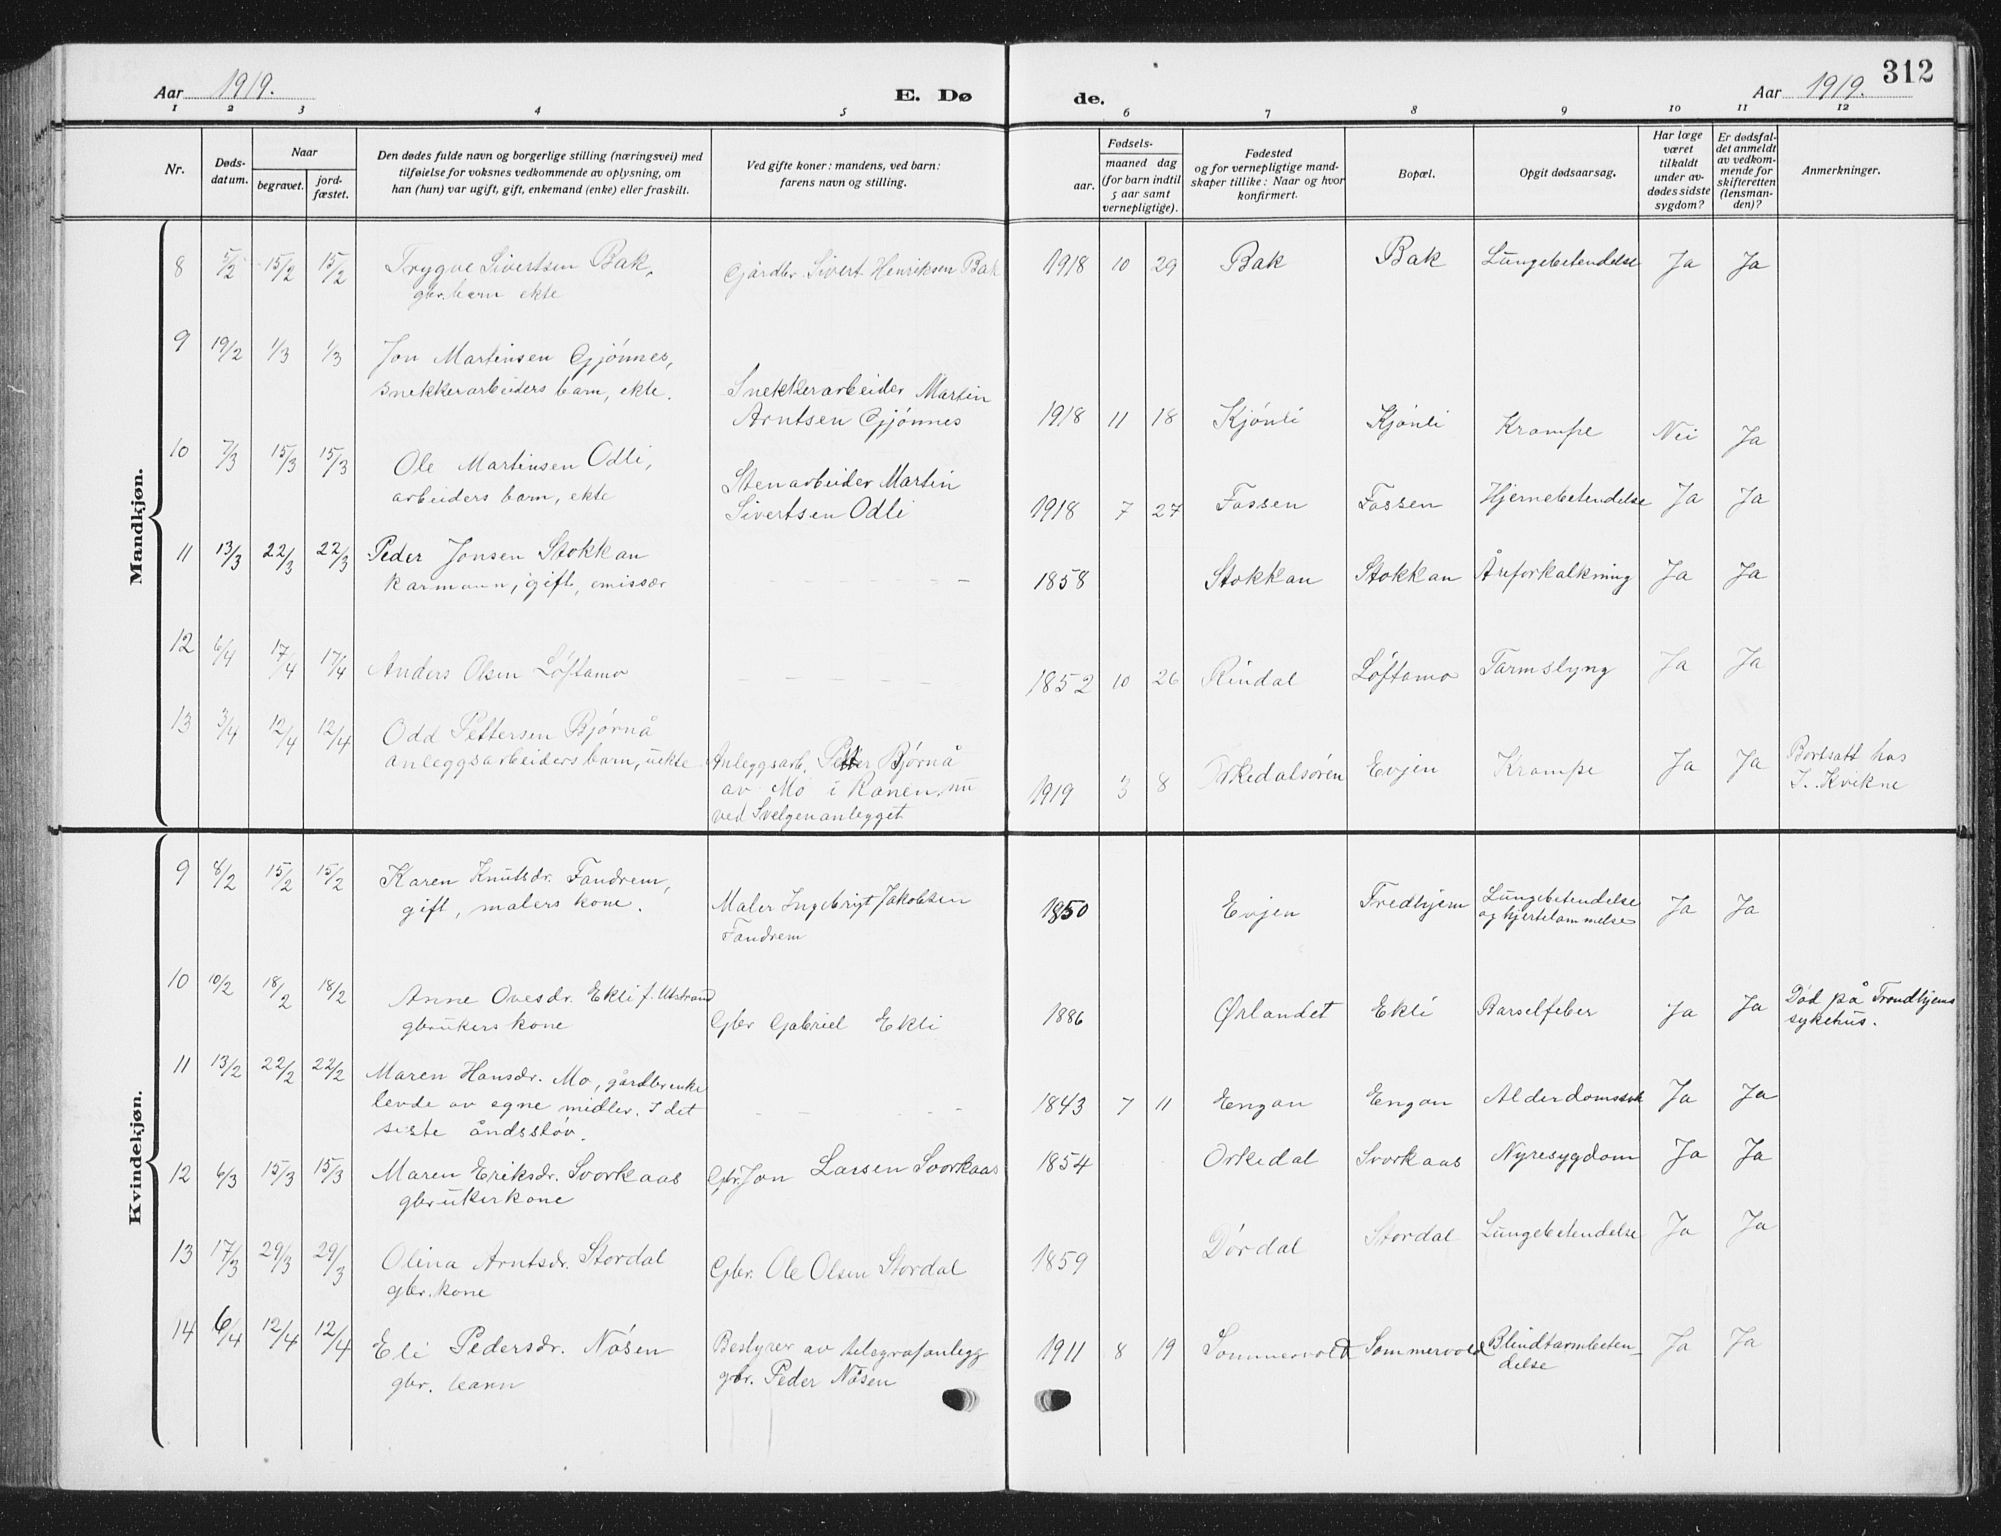 312
Aar 1919.
E. Dø
de.
Aar 1919.
1 2 3 4 5 6 7 8 9 10 11 12
Nr.
Døds-
datum.
Naar
begravet.
jord-
fæstet.
Den dødes fulde navn og borgerlige stilling (næringsvei) med
tilføielse for voksnes vedkommende av oplysning, om
han (hun) var ugift, gift, enkemand (enke) eller fraskilt.
Ved gifte koner: mandens, ved barn:
farens navn og stilling.
Fødsels-
aar.
maaned dag
(for barn indtil
5 aar samt
vernepligtige).
Fødested
og for vernepligtige mand-
skaper tillike: Naar og hvor
konfirmert.
Bopæl.
Opgit dødsaarsag.
Har læge
været
tilkaldt
under av-
dødes sidste
sygdom?
Er dødsfal-
det anmeldt
av vedkom-
mende for
skifteretten
(lensman-
den)?
Anmerkninger.
Mandkjøn.
8 5/2 15/2 15/2 Trygve Sivertsen Bak, Gårdbr. Sivert Henriksen Bak 1918 10 29 Bak Bak Lungebetendelse Ja Ja
gbr. barn ekte
9 19/2 1/3 1/3 Jon Martinsen Gjønnes,
snekkerarbeiders barn, ekte. Snekkerarbeider Martin
Arntsen Gjønnes 1918 11 18 Kjønli Kjønli Krampe Nei Ja
10 7/3 15/3 15/3 Ole Martinsen Odli,
arbeiders barn, ekte Stenarbeider Martin
Sivertsen Odli 1918 7 27 Fossen Fossen Hjernebetendelse Ja Ja
11 13/3 22/3 22/3 Peder Jonsen Stokkan
karmann, gift, emissær – – – – – – 1858 Stokkan Stokkan Åreforkalkning Ja Ja
12 6/4 17/4 17/4 Anders Olsen Løftamo – – – – – – 1852 10 26 Rindal Løftamo Tarmslyng Ja Ja
13 3/4 12/4 12/4 Odd Pettersen Bjørnå
anleggsarbeiders barn, uekte Anleggsarb. Petter Bjørnå
av Mo i Ranen, nu
ved Svelgenanlegget 1919 3 8 Orkedalsøren Evjen Krampe Ja Ja Bortsatt hos
I. Kvikne
Kvindekjøn.
9 8/2 15/2 15/2 Karen Knutsdr. Fandrem,
gift, malers kone. Maler Ingebrigt Jakobsen
Fandrem 1850 Evjen Fredhjem Lungebetendelse
og hjertelammelse Ja Ja
10 10/2 18/2 18/2 Anne Ovesdr. Ekli f. Utstrand
gbrukers kone Gbr Gabriel Ekli 1886 Ørlandet Ekli Barselfeber Ja Ja Død på Trondhjems
sykehus.
11 13/2 22/2 22/2 Maren Hansdr. Mo, gårdbr enke
levde av egne midler. I det
siste åndssløv. – – – – 1843 7 11 Engan Engan Alderdomssvk Ja Ja
12 6/3 15/3 15/3 Maren Eriksdr. Svorkaas
gbrukerkone Gbr. Jon Larsen Svorkaas 1854 Orkedal Svorkaas Nyresygdom Ja Ja
13 17/3 29/3 29/3 Olina Arntsdr. Stordal
gbr. kone Gbr. Ole Olsen Stordal 1859 Dørdal Stordal Lungebetendelse Ja Ja
14 6/4 12/4 12/4 Eli Pedersdr. Nåsen
gbr. barn Bestyrer av telegrafanlegg
gbr. Peder Nåsen 1911 8 19 Sommervold Sommervold Blindtarmbeten-
delse Ja Ja